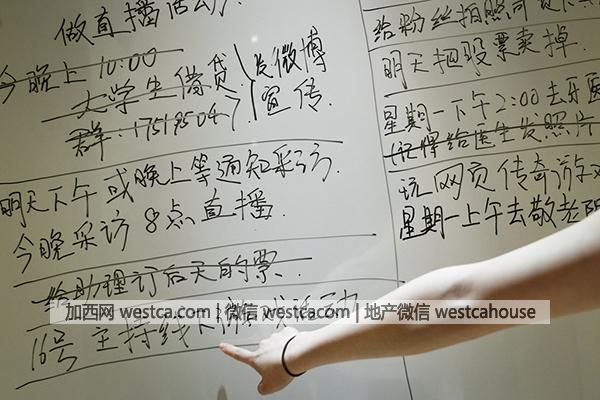 做直播活动
今晚上 10:00
大学生借贷
发微博
宣传.
明天下午或晚上等通知采访.
今晚采访 8点直播.
给助理订后天的票.
加西网 westca.com | 微信 westcacom | 地产微信 westcahouse
16号 主持线下
给粉丝拍照
明天把股票卖掉.
星期一下午2:00去牙医
(记得给医生发照片
玩网页传奇游戏
星期一上午去敬老